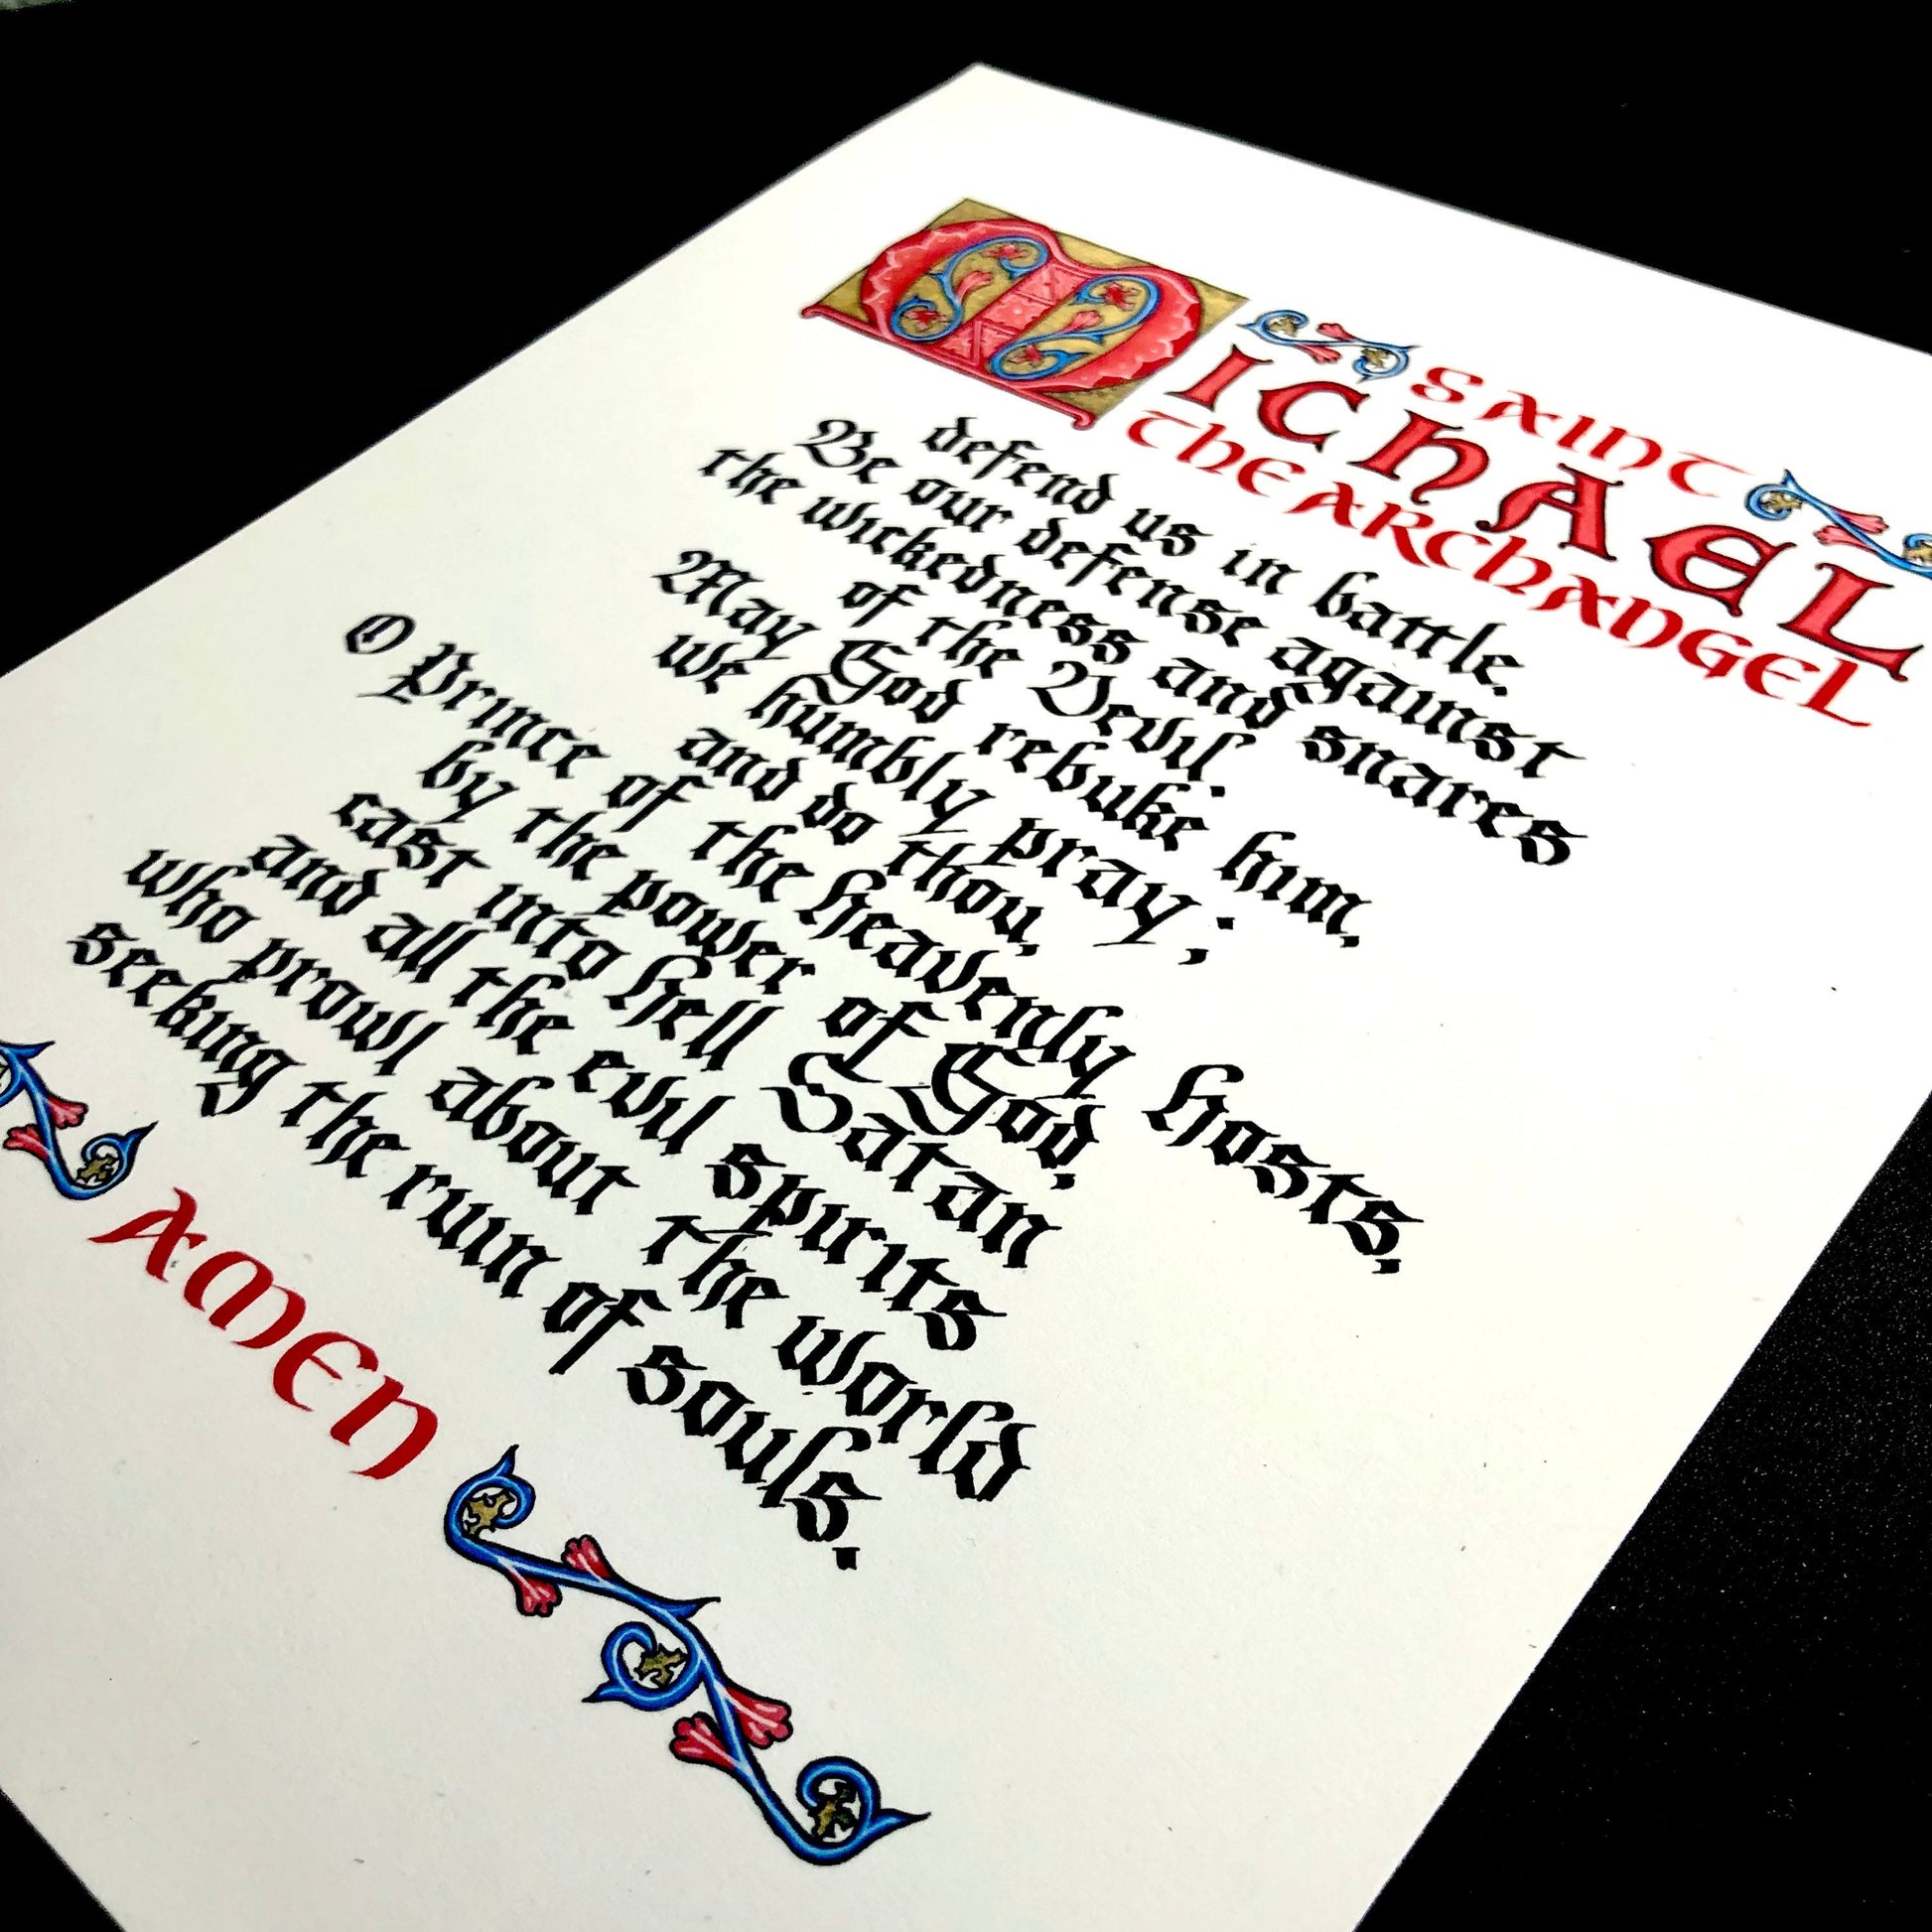 SAINT
MICHAEL
THE ARCHANGEL
defend us in battle.
Be our defense against
the wickedness and snares
of the Devil.
May God rebuke him,
we humbly pray;
and do thou,
O Prince of the heavenly hosts,
by the power of God,
cast into hell Satan
and all the evil spirits
who prowl about the world
seeking the ruin of souls.
AMEN